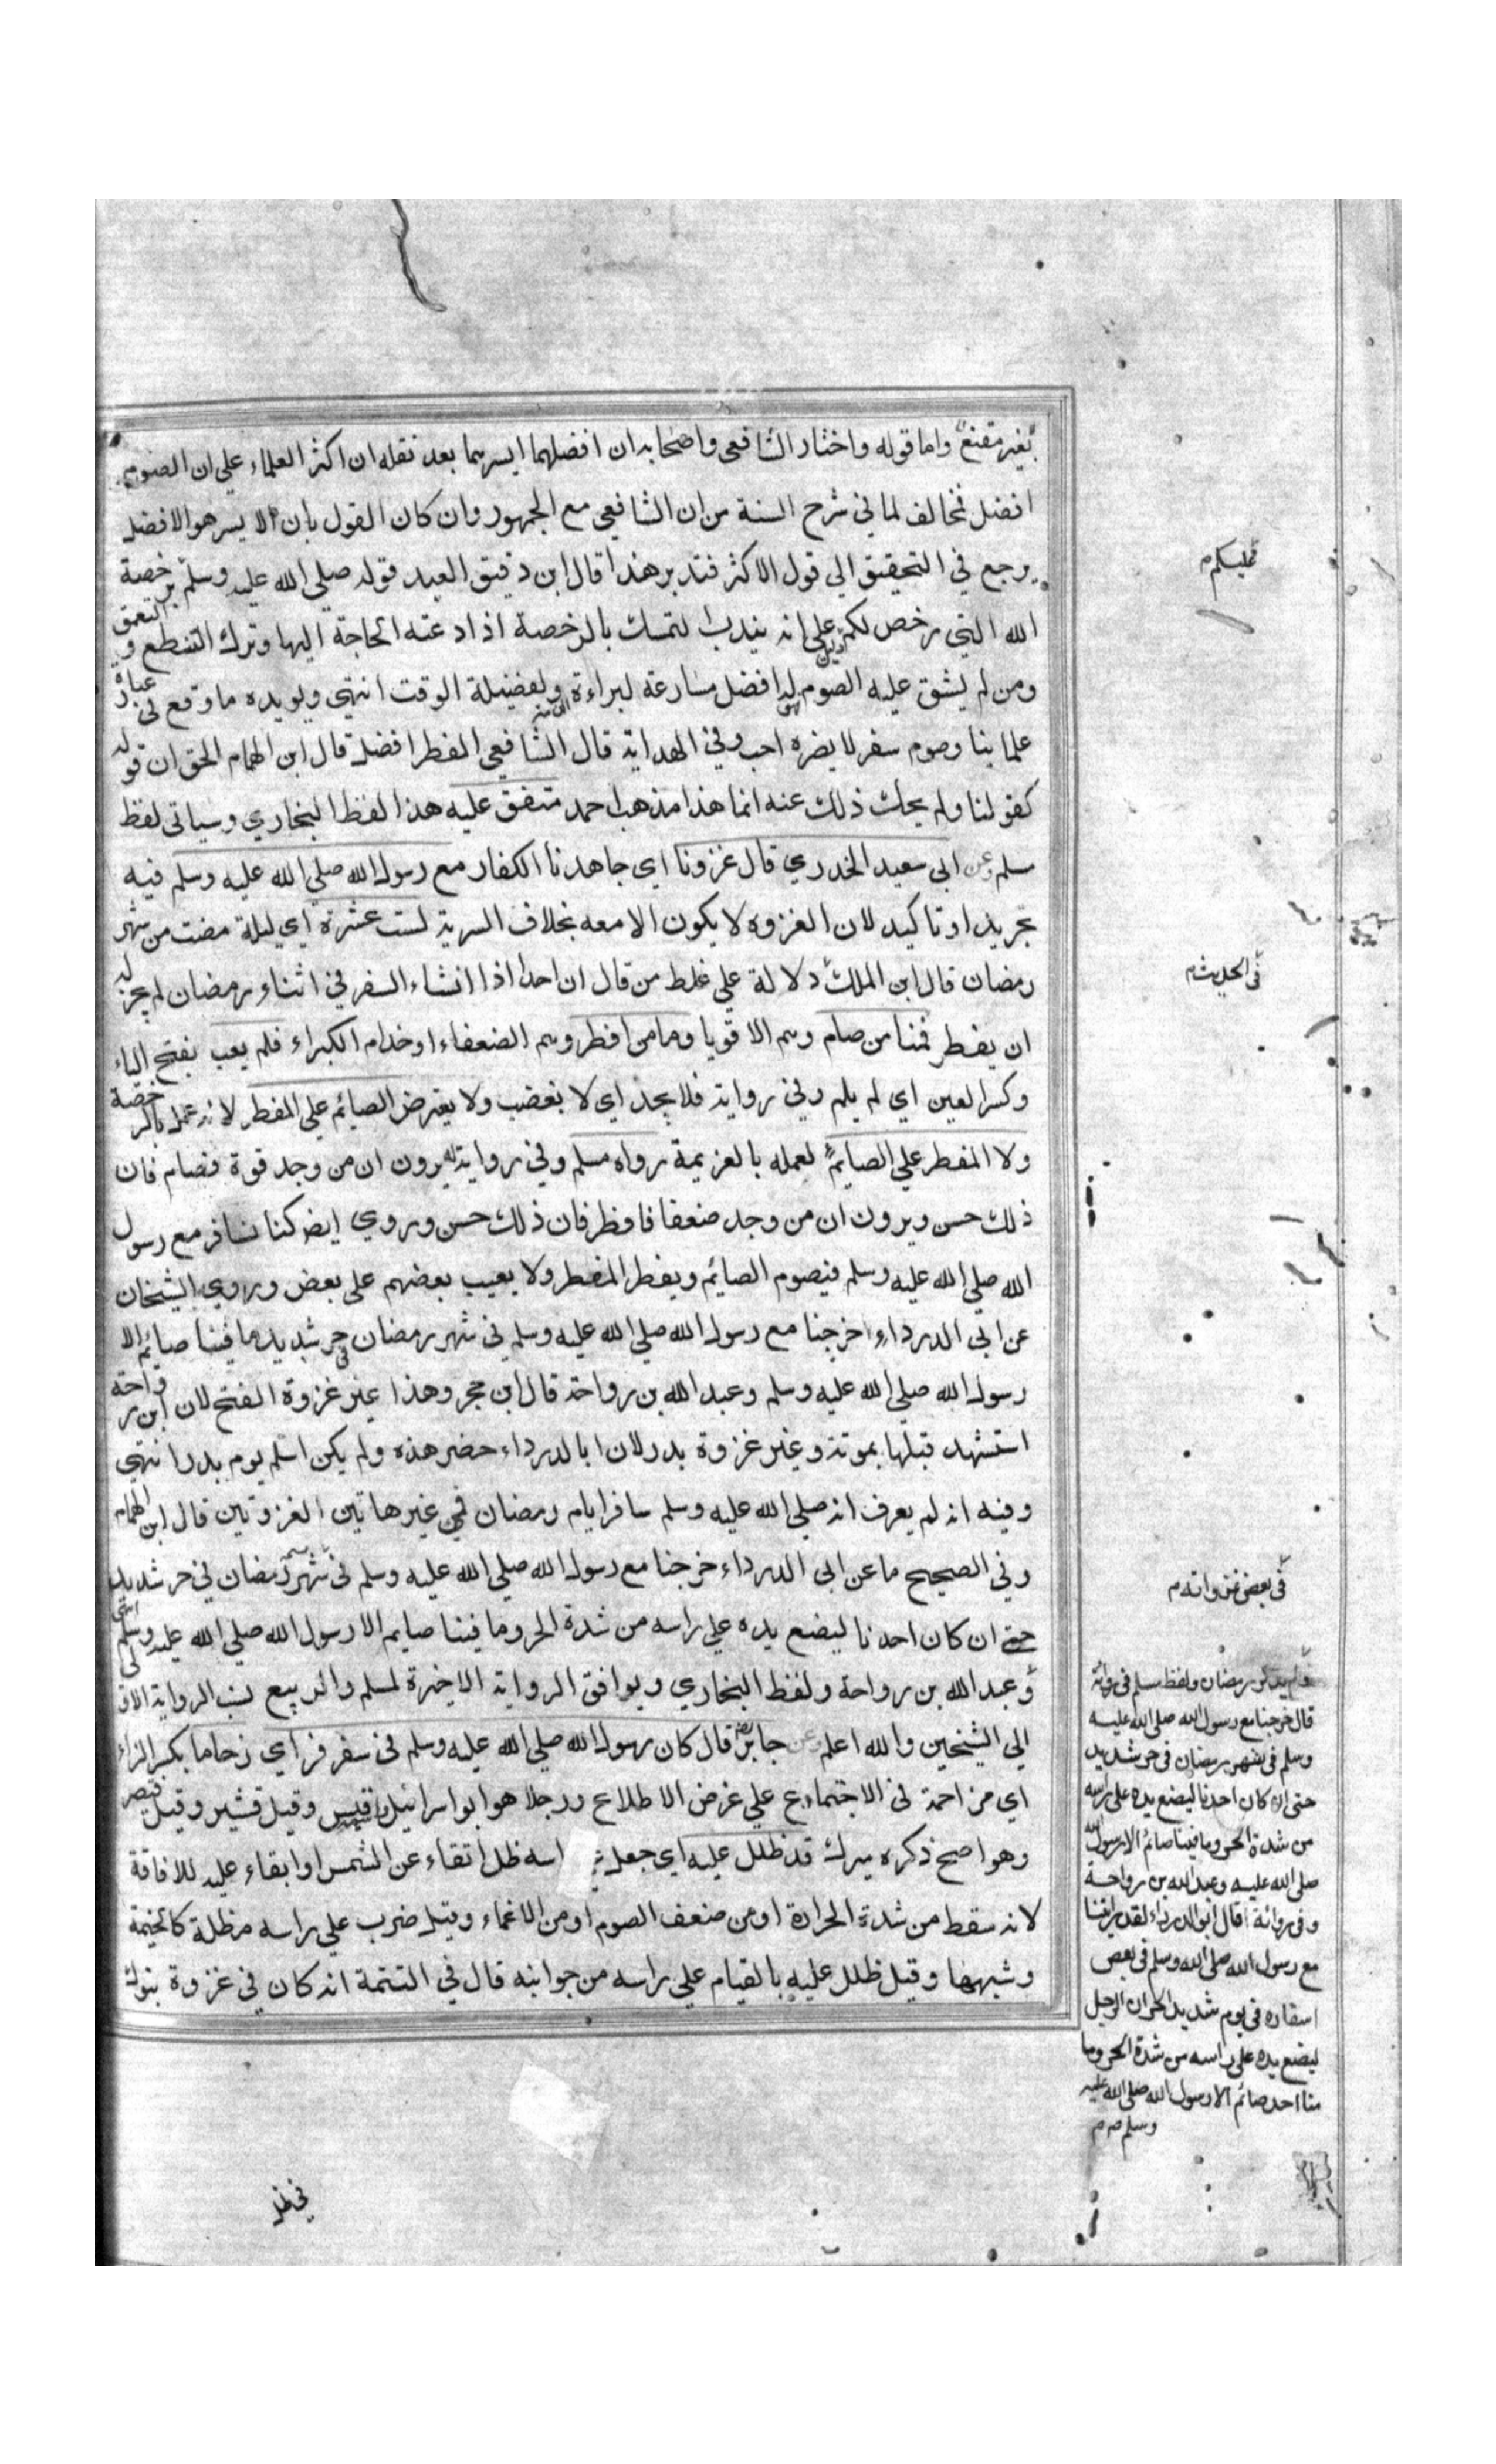 بغير مقنع واما قوله واختار الشافعي واصحابه ان افضلهما ايسرهما بعد نقله ان اكثر العلماء علي ان الصوم
افضل فمخالف لما في شرح السنة من ان الشافعي مع الجمهور وان كان القول بان الايسر هو الافضل
يرجع في التحقيق الي قول الاكثر فتدبر هذا قال ابن دقيق العيد قوله صلي الله عليه وسلم برخصة
الله التي رخص لكم دليل علي انه يندب التمسك بالرخصة اذا دعته الحاجة اليها وترك التنطع و التعمق
ومن لم يشق عليه الصوم فهو له افضل مسارعة لبراءة الذمة ولفضيلة الوقت انتهي ويويده ما وقع في عبارة
علماينا وصوم سفر لا يضره احب وفي الهداية قال الشافعي الفطر افضل قال ابن الهمام الحق ان قوله
كقولنا ولم يحك ذلك عنه انما هذا مذهب احمد متفق عليه هذا لفظ البخاري وسياتي لفظ
مسلم وعن ابي سعيد الخدري قال غزونا اي جاهدنا الكفار مع رسول الله صلي الله عليه وسلم فيه
تجريد او تاكيد لان الغزوه لا يكون الا معه بخلاف السرية لست عشرة اي ليلة مضت من شهر
رمضان قال ابن الملك دلالة علي غلط من قال ان احدا اذا انشاء السفر في اثناء رمضان لم يجز له
ان يفطر فمنا من صام وهم الاقويا ومنا من افطر وهم الضعفاء او خدام الكبراء فلم يعب بفتح الياء
وكسر العين اي لم يلم وفي رواية فلا يجد اي لا يغضب ولا يعترض الصائم علي المفطر لانه عمل بالرخصة
ولا المفطر علي الصايم لعمله بالعزيمة رواه مسلم وفي رواية له يرون ان من وجد قوة فصام فان
ذلك حسن ويرون ان من وجد ضعفا فافطر فان ذلك حسن وروي ايض كنا نسافر مع رسول
الله صلي الله عليه وسلم فيصوم الصائم ويفطر المفطر ولا يعيب بعضهم علي بعض وروي الشيخان
عن ابي الدرداء اخرجنا مع رسول الله صلي الله عليه وسلم في شهر رمضان في حر شديد ما فينا صائم الا
رسول الله صلي الله عليه وسلم وعبد الله بن رواحة قال ابن حجر وهذا غير غزوة الفتح لان ابن رواحة
استشهد قبلها بموتة وغير غزوة بدر لان ابا الدرداء حضر هذه ولم يكن اسلم يوم بدر انتهي
وفيه انه لم يعرف انه صلي الله عليه وسلم سافر ايام رمضان في غير هاتين الغزوتين قال ابن الهمام
وفي الصحيح ما عن ابي الدرداء خرجنا مع رسول الله صلي الله عليه وسلم في شهر رمضان في حر شديد
حتي ان كان احدنا ليضع يده علي راسه من شدة الحر وما فينا صايم الا رسول الله صلي الله عليه وسلم انتهي
وعبد الله بن رواحة ولفظ البخاري ويوافق الرواية الاخيرة لمسلم والربيع نسب الرواية الاولي
الي الشيخين والله اعلم وعن جابر رض قال كان رسول الله صلي الله عليه وسلم في سفر فراي زحاما بكسر الزاء
اي مزاحمة في الاجتماع علي غرض الاطلاع ورجلا هو ابو اسرائيل قيس وقيل قشير وقيل قيصر
وهو اصح ذكره ميرك قد ظلل عليه اي جعل راسه ظل اتقاء عن الشمس او ابقاء عليه للافاقة
لانه سقط من شدة الحرارة او من ضعف الصوم او من الاغماء وقيل ضرب علي راسه مظلة كالخيمة
وشبهها وقيل ظلل عليه بالقيام علي راسه من جوانبه قال في التتمة انه كان في غزوة تبوك
في ظل
فعليكم م
في الحديث م
في بعض غزواته م
ولم يذكر رمضان ولفظ مسلم في رواية
قال خرجنا مع رسول الله صلى الله عليه
وسلم في شهر رمضان في حر شديد
حتى ان كان احدنا ليضع يده على راسه
من شدة الحر وما فينا صائم الا رسول الله
صلى الله عليه وعبد الله بن رواحة
وفي رواية قال ابو الدرداء لقد رايتنا
مع رسول الله صلى الله وسلم في بعض
اسفاره في يوم شديد الحر ان الرجل
ليضع يده على راسه من شدة الحر وما
منا احد صائم الا رسول الله صلى الله عليه
وسلم صح م